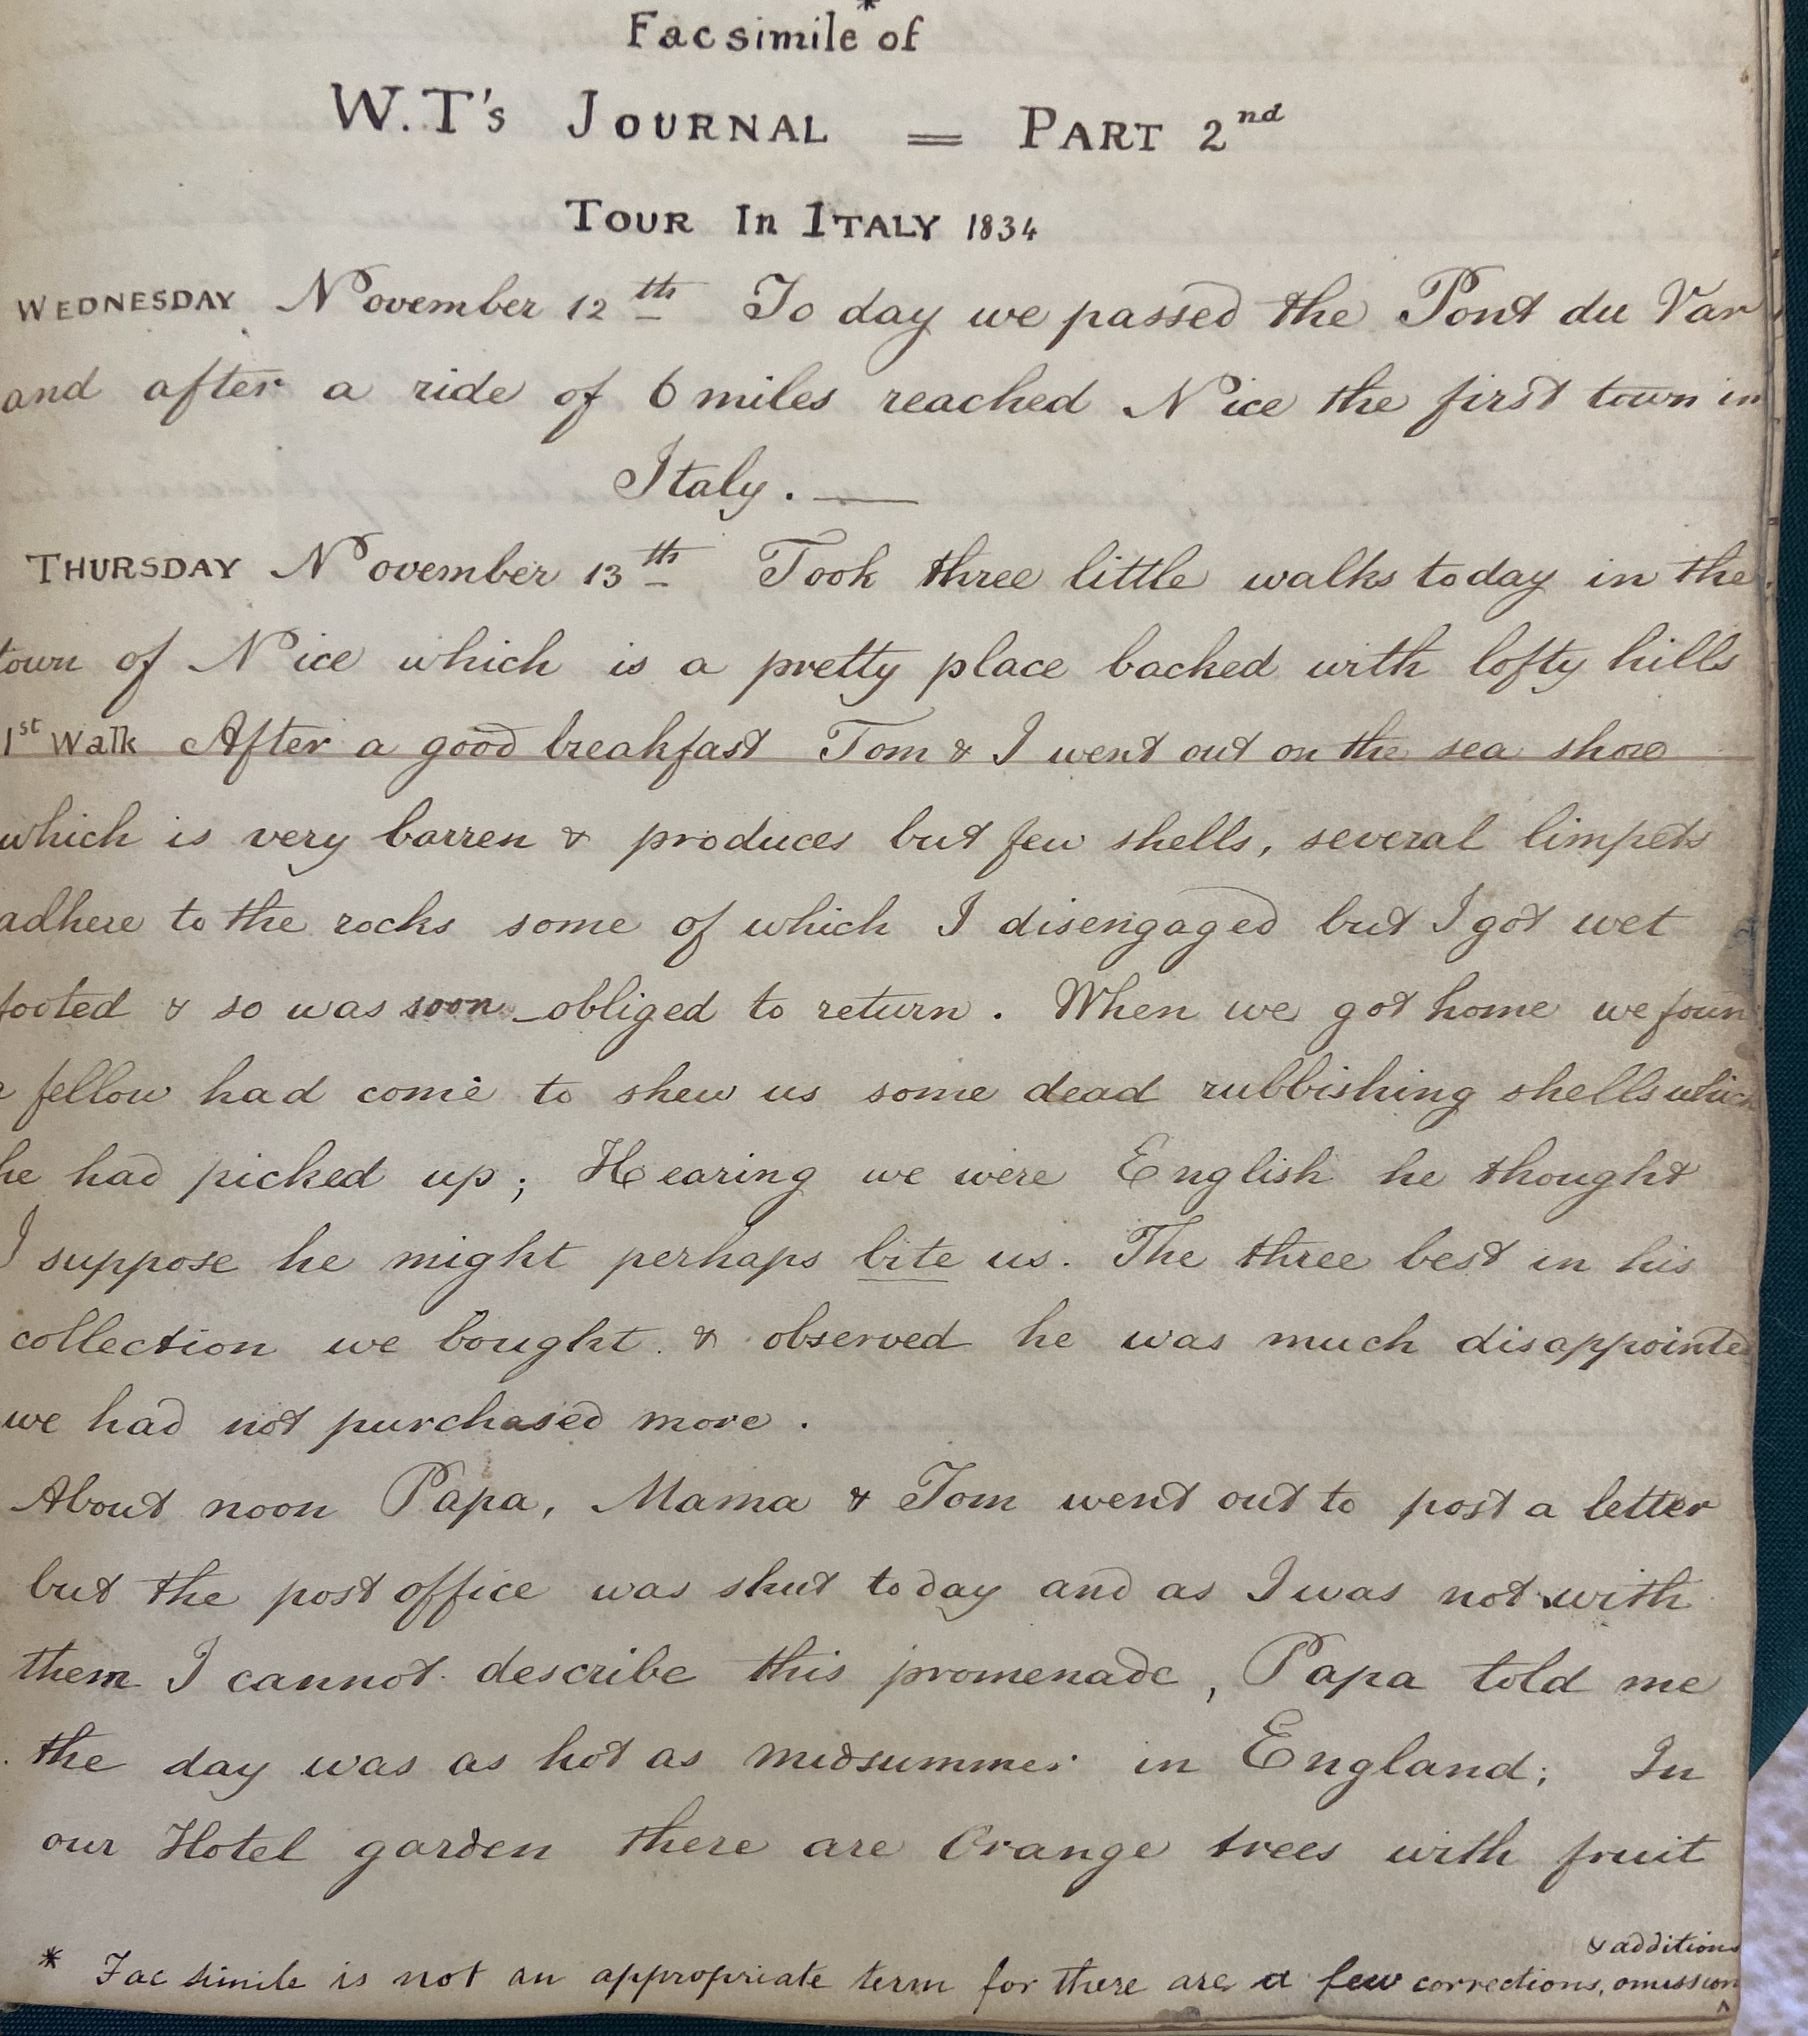 Facsimile* of
W.T's JOURNAL = PART 2nd
TOUR In ITALY 1834
WEDNESDAY November 12th To day we passed the Pont du Var
and after a ride of 6 miles reached Nice the first town in
Italy. —
THURSDAY November 13th Took three little walks today in the
town of Nice which is a pretty place backed with lofty hills
1st Walk After a good breakfast Tom & I went out on the sea shore
which is very barren & produces but few shells, several limpets
adhere to the rocks some of which I disengaged but I got wet
footed & so was soon obliged to return. When we got home we foun
a fellow had come to shew us some dead rubbishing shells which
he had picked up; Hearing we were English he thought
I suppose he might perhaps bite us. The three best in his
collection we bought. & observed he was much disappointed
we had not purchased more.
About noon Papa, Mama & Tom went out to post a letter
but the post office was shut to day and as I was not with
them I cannot describe this promenade, Papa told me
the day was as hot as midsummer in England; In
our Hotel garden there are Orange trees with fruit
& additions
* Fac simile is not an appropriate term for there are a few corrections, omission